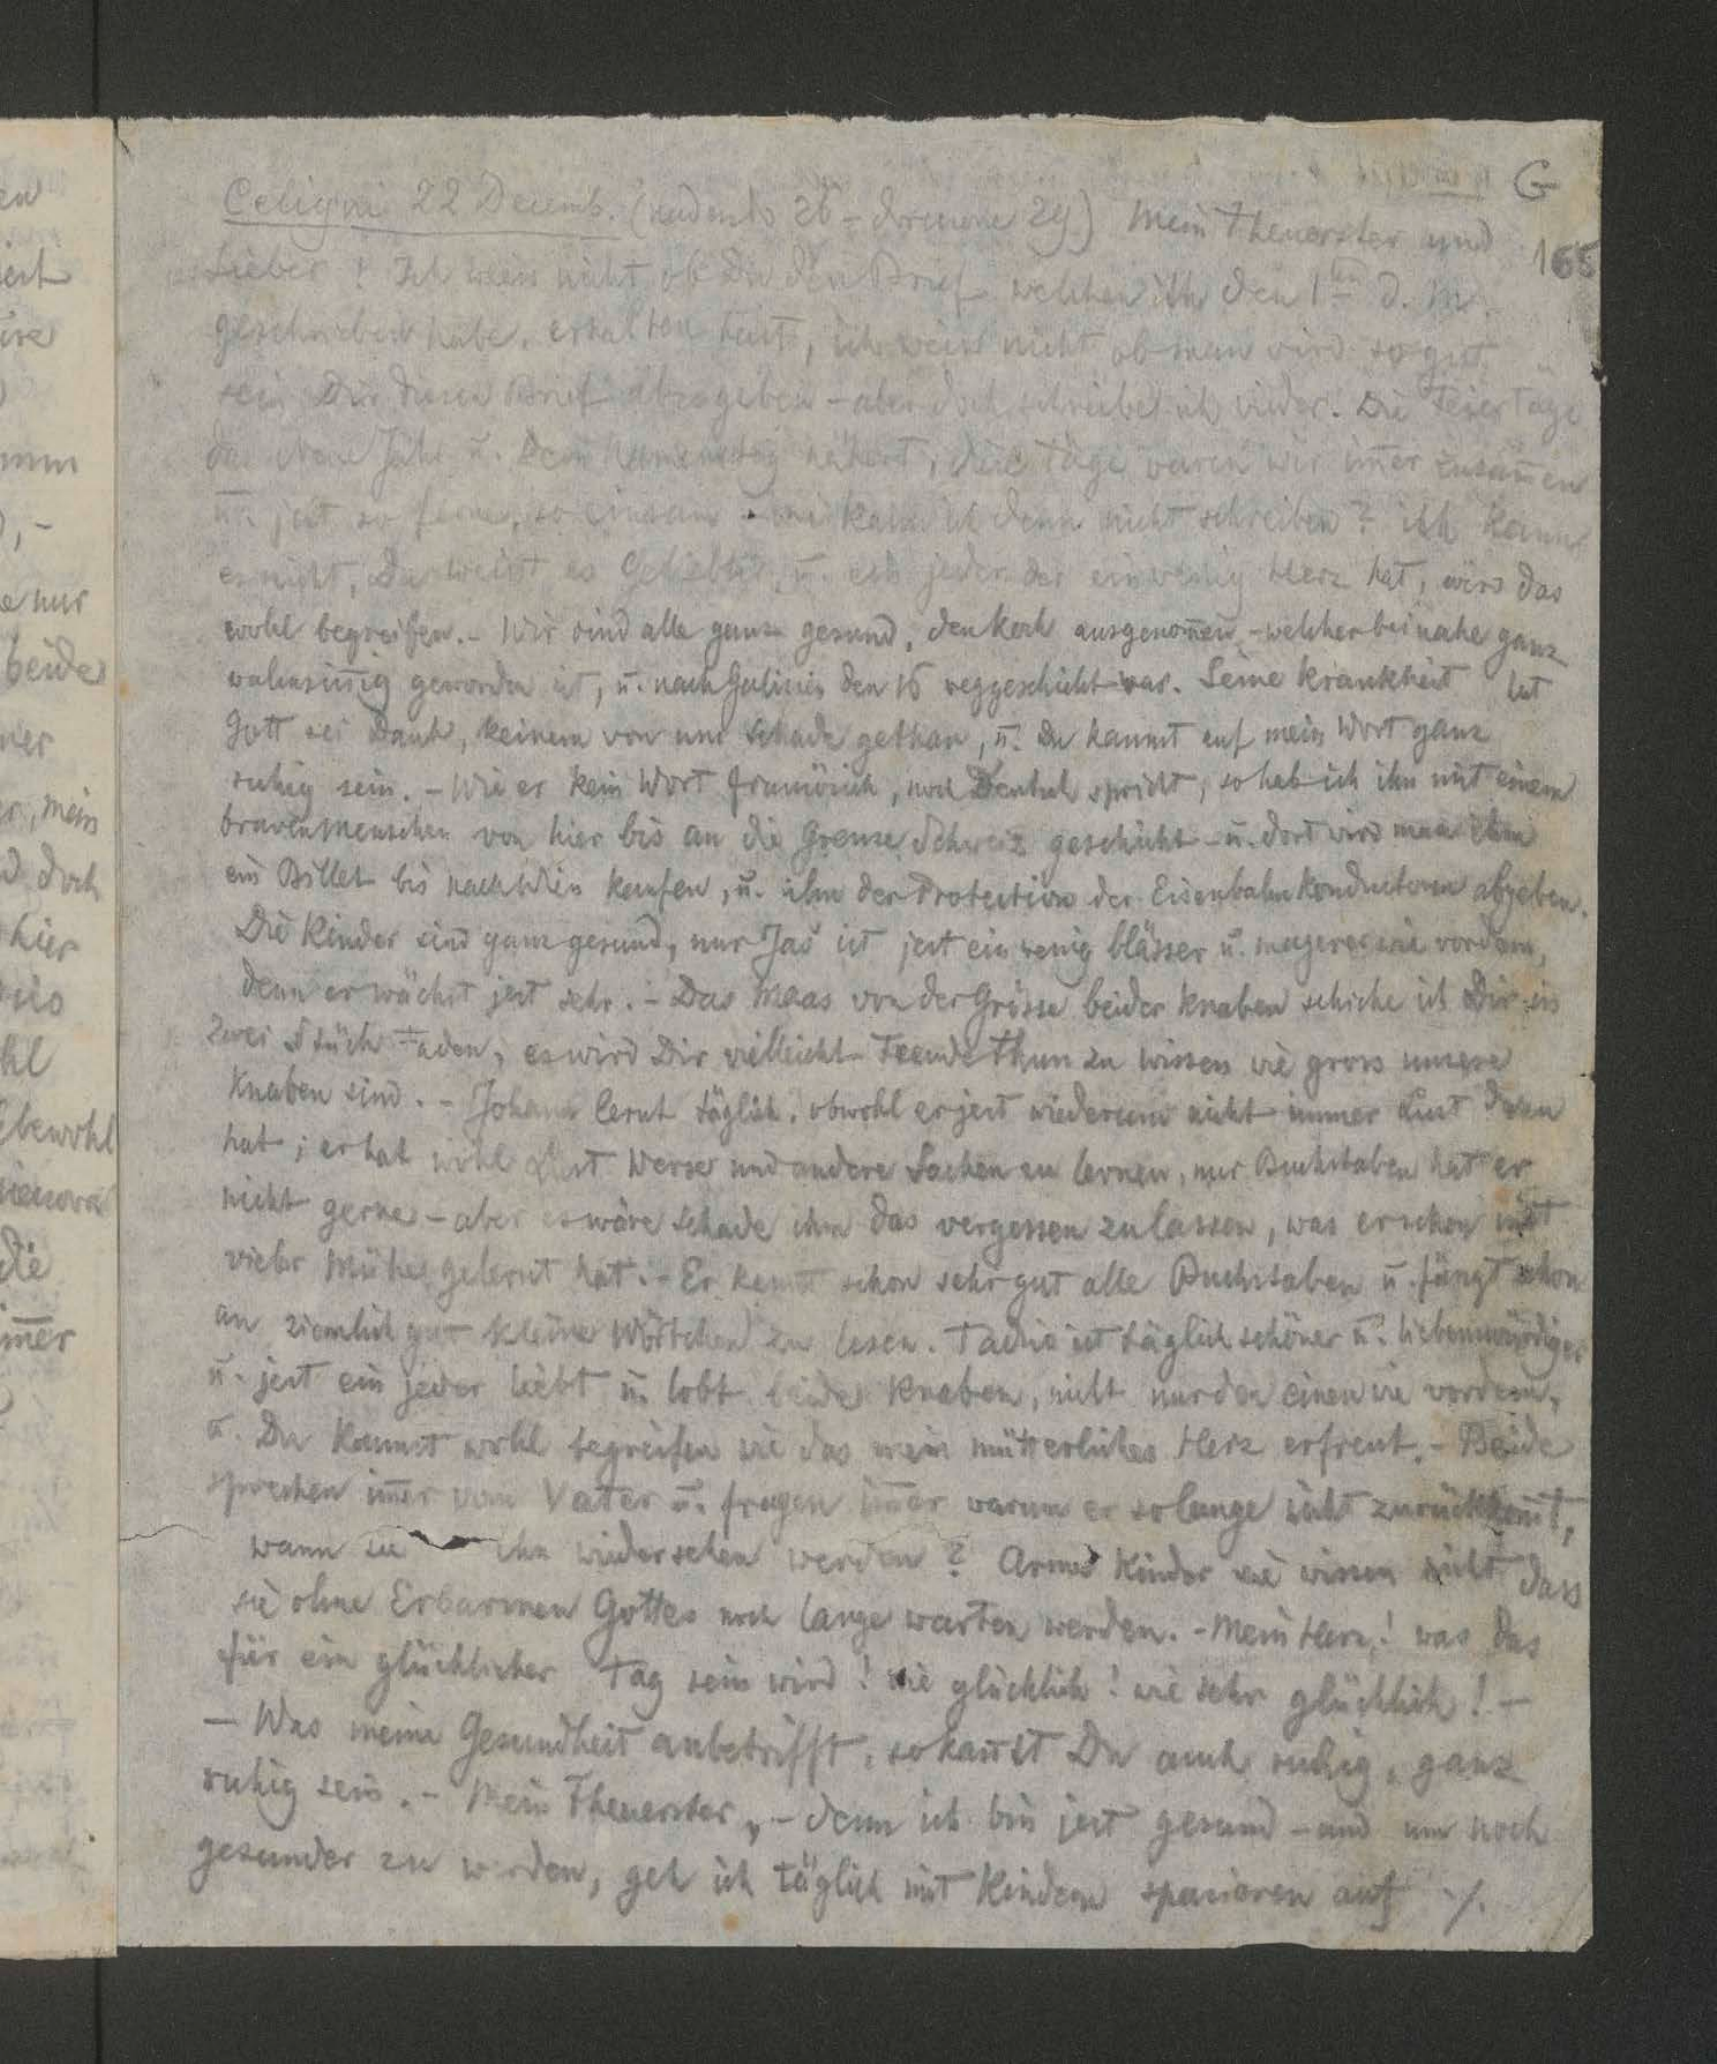 G
165
Celigni 22 Decemb. (nadesło 26 - doręczone 29.) Mein theuerster und
Lieber! Ich weis nicht ob Du den Brief welchen ich den 1ten d. M.
geschrieben habe, erhalten hast, ich weis nicht ob man wird so gut
sein Dir diesen Brief abzugeben - aber doch schreibe ich wieder. Die Feiertäge
das Neue Jahr u. Dein Namenstag nähert, diese täge waren wir im̄er zusam̄en
u. jest so ferne, so einsam - wie kann ich denn nicht schreiben? ich kann
es nicht, Du weist es Geliebter, u. ein jeder der ein wenig Herz hat, wird das
wohl begreifen. - Wir sind alle ganz gesund, den Koch ausgenom̄en - welcher beinahe ganz
wahnsin̄ig geworden ist, u. nach Galizien den 16 weggeschickt war. Seine Krankheit hat
Gott sei Dank, keinem von uns Schade gethan, u. Du kannst auf mein Wort ganz
ruhig sein. - Wie er kein Wort französich, noch Deutsch spricht, so hab ich ihn mit einem
braven Menschen von hier bis an die Grenze Schweiz geschickt - u. dort wird man ihm
ein Billet bis nach Wien kaufen, u. ihn der Protection der Eisenbahn Konducteren abgeben.
Die Kinder sind ganz gesund, nur Jaś ist jest ein wenig blässer u. magerer wie vordem,
denn er wächst jest sehr. - Das Maas von der Grösse beider Knaben schicke ich Dir in
zwei Stück Faden, es wird Dir vielleicht Freude thun zu wissen wie gross unsere
Knaben sind. - Johann lernt täglich, obwohl er jest wiederum nicht immer Lust dazu
hat; er hat wohl Lust Werse und andere Sachen zu lernen, nur Buchstaben hat er
nicht gerne - aber es wäre Schade ihn das vergessen zu lassen, was er schon mit
vieler Mühe gelernt hat. - Er kennt schon sehr gut alle Buchstaben u. fängt schon
an ziemlich gut kleine Wörtchen zu lesen. Tadzio ist täglich schöner u. liebenswürdiger
u. jest ein jeder liebt u. lobt beide Knaben, nicht nur den einen wie vordem,
u. Du kannst wohl begreifen wie das mein mütterliches Herz erfreut. - Beide
sprechen im̄er vom Vater u. fragen im̄er warum er so lange nicht zurückkom̄t,
wann sie ihn wiedersehen werden? Arme Kinder sie wissen nicht dass
sie ohne Erbarmen Gottes noch lange warten werden. - Mein Herz! was das
für ein glücklicher Tag sein wird! wie glücklich! wie sehr glücklich! -
- Was meine Gesundheit anbetrifft, so kan̄st Du auch ruhig, ganz
ruhig sein. - Mein Theuerster, - denn ich bin jest gesund - und um noch
gesunder zu werden, geh ich täglich mit Kindern spazieren auf ./.